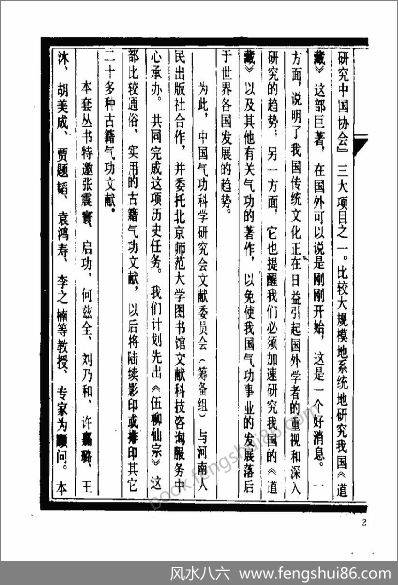 研究中国协会』三大项目之一。比较大规模地系统地研究我国《道
藏》这部巨著,在国外可以说是刚刚开始,这是一个好消息。一
方面,说明了我国传统文化正在日益引起国外学者的重视和深入
研究的趋势;另一方面,它也提醒我们必须加速研究我国的《道
藏》以及其他有关气功的著作,以免使我国气功事业的发展落后
于世界各国发展的趋势。
为此,中国气功科学研究会文献委员会(筹备组)与河南人
民出版社合作,并委托北京师范大学图书馆文献科技咨询服务中
心承办。共同完成这项历史任务。我们计划先出《伍柳仙宗》这
部比较通俗,实用的古籍气功文献,以后将陆续影印或排印其它
二十多种古籍气功文献。
本套丛书特邀张震寰、启功、何兹全、刘乃和、许嘉璐、王
沐、胡美成、贾题韬、袁鸿寿、李之楠等教授、专家为顾问。本
2
book.fengshui86.com
风水八六 - www.fengshui86.com